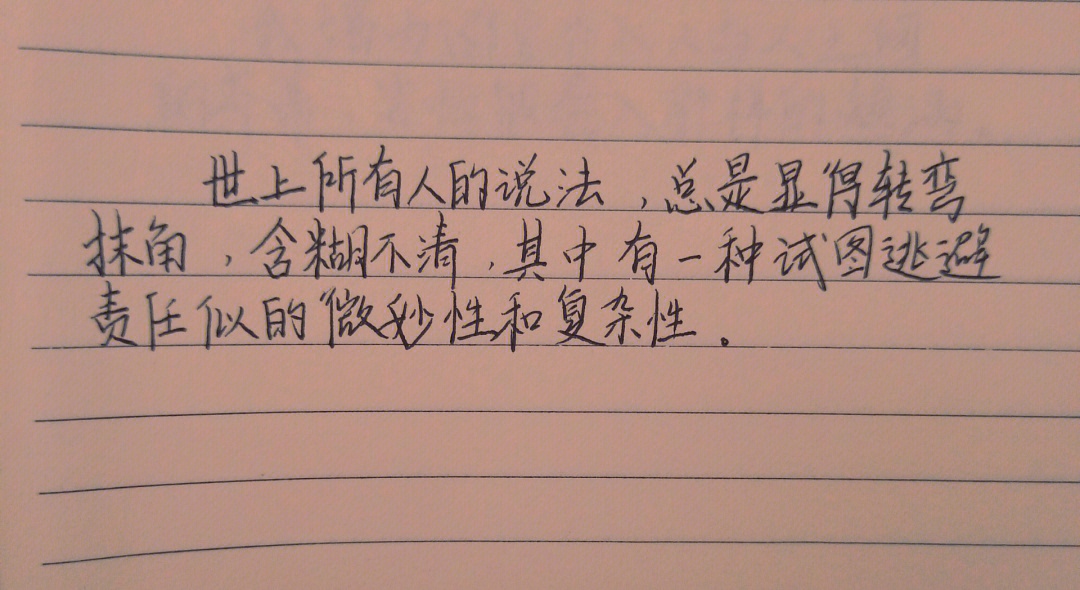 世上所有人的说法,总是显得转弯
抹角,含糊不清,其中有一种试图逃避
责任似的微妙性和复杂性。